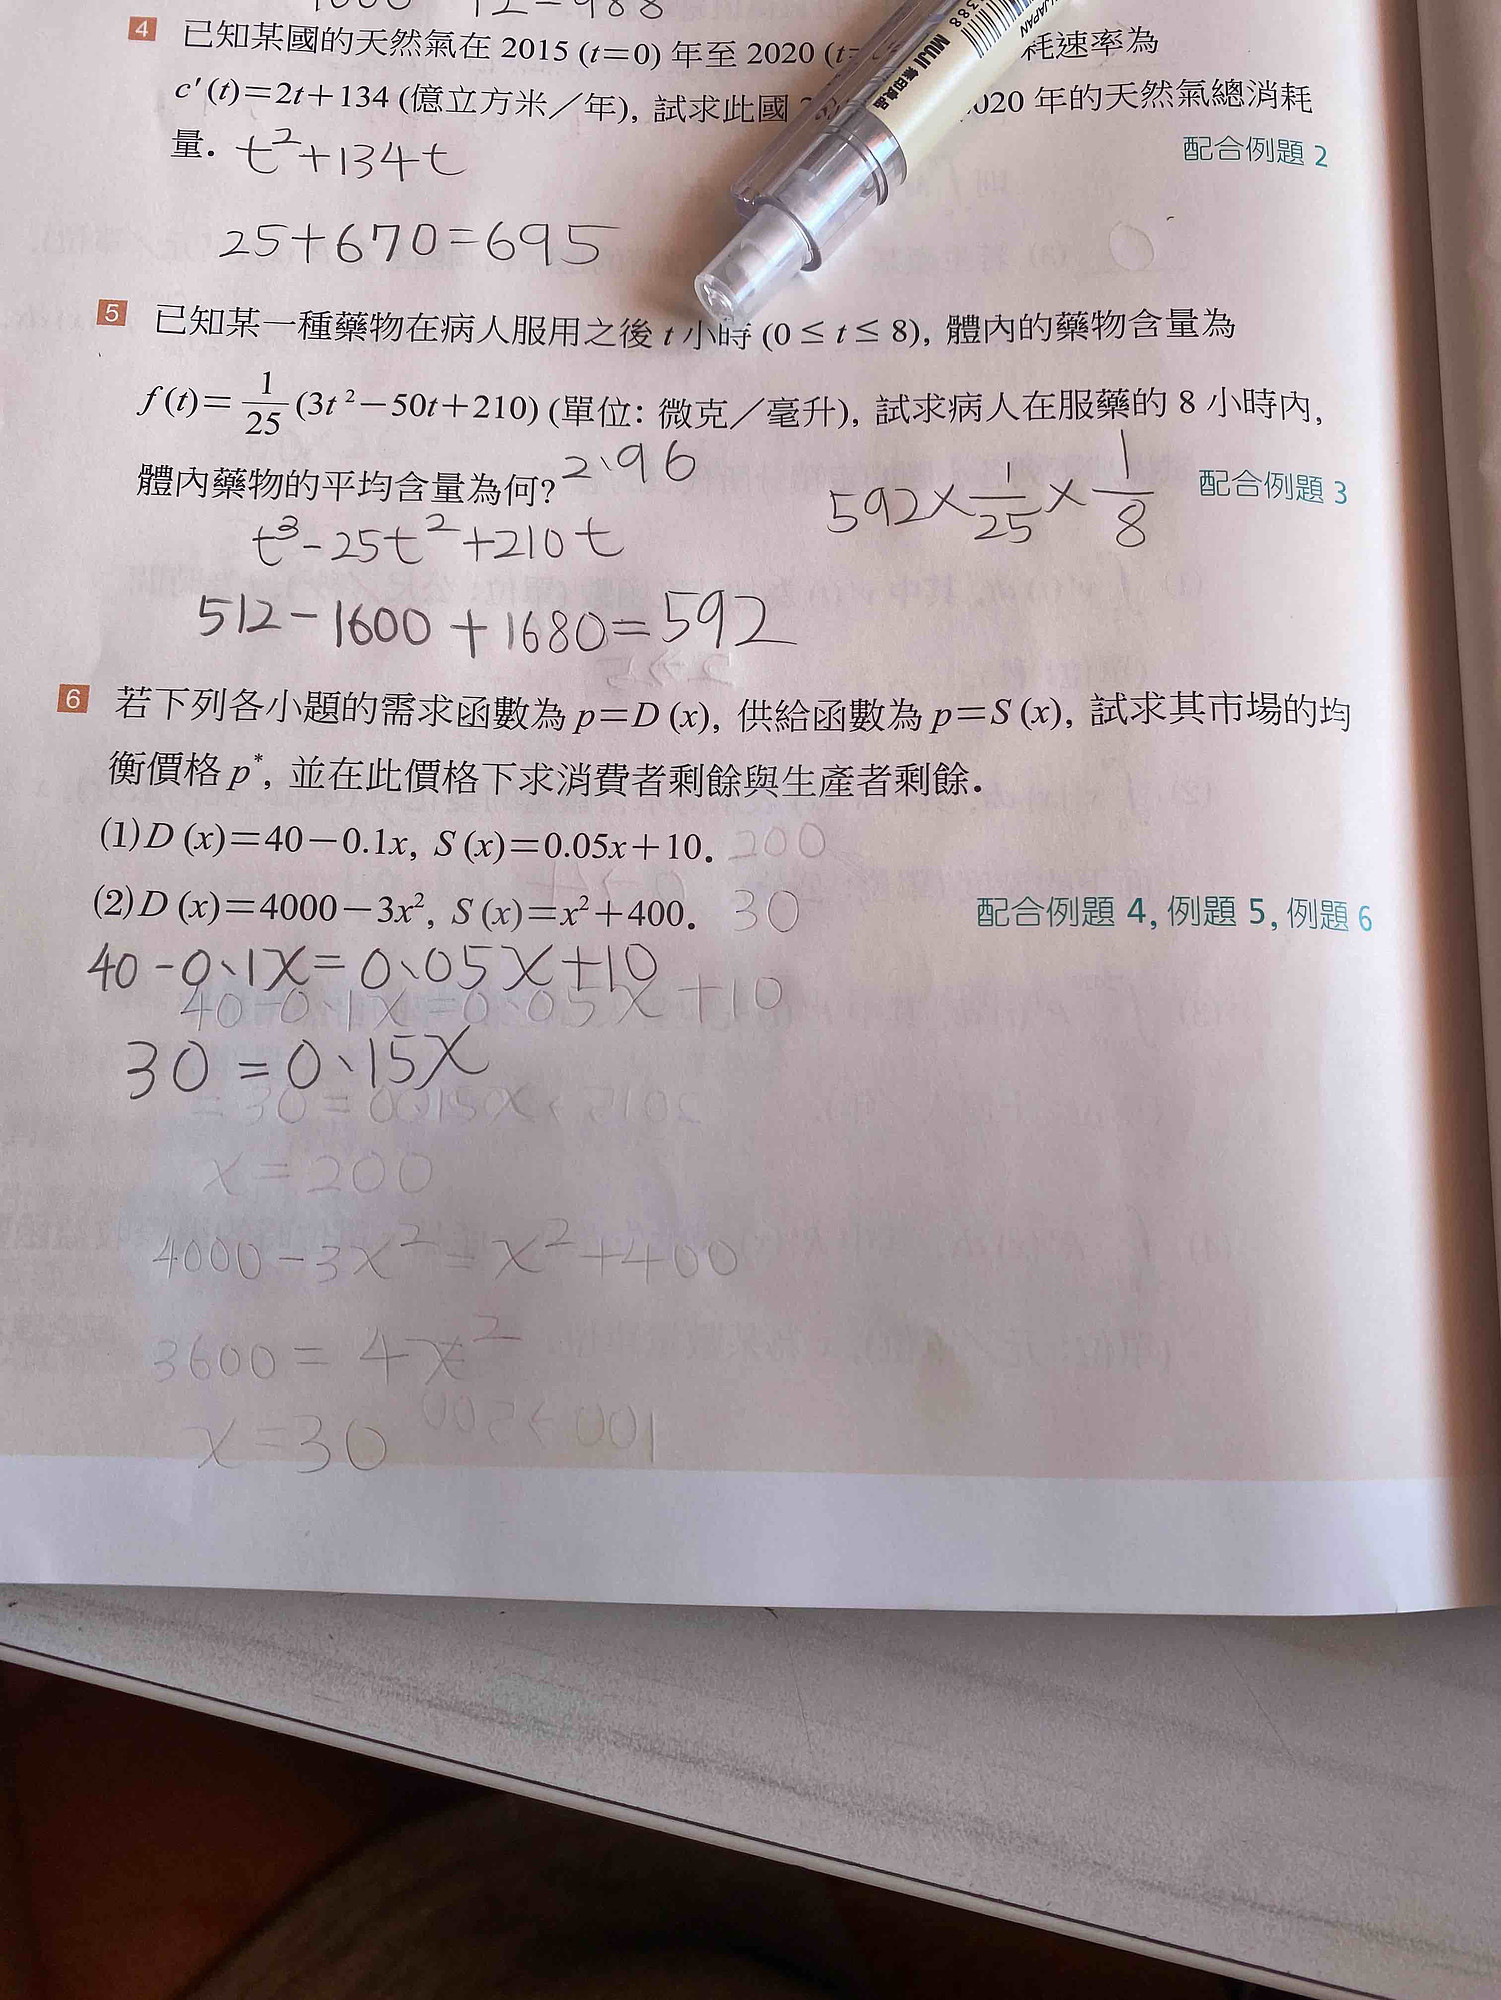 1000-12=988
4 已知某國的天然氣在 2015 (t=0) 年至 2020 (t= 耗速率為
c′(t)=2t+134 (億立方米／年), 試求此國 2020 年的天然氣總消耗
量. t²+134t
配合例題 2
25+670=695
5 已知某一種藥物在病人服用之後 t 小時 (0 ≤ t ≤ 8), 體內的藥物含量為
f(t)=1/25(3t²−50t+210) (單位: 微克／毫升), 試求病人在服藥的 8 小時內,
體內藥物的平均含量為何? 2.96
592×1/25×1/8
配合例題 3
t³-25t²+210t
512-1600+1680=592
6 若下列各小題的需求函數為 p=D(x), 供給函數為 p=S(x), 試求其市場的均
衡價格 p*, 並在此價格下求消費者剩餘與生產者剩餘.
(1)D(x)=40−0.1x, S(x)=0.05x+10. 200
(2)D(x)=4000−3x², S(x)=x²+400. 30
配合例題 4, 例題 5, 例題 6
40-0.1x=0.05x+10
40-0.1x=0.05x+10
30=0.15x
x=200
4000-3x²=x²+400
3600=4x²
x=30
MUJI 無印良品
JAPAN